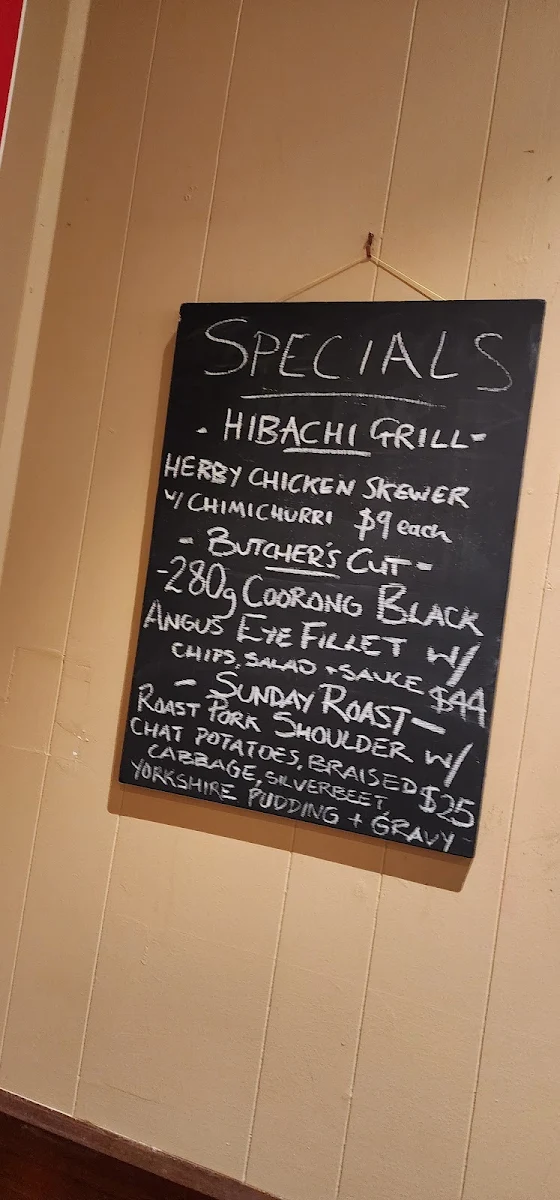 SPECIALS
- HIBACHI GRILL-
HERBY CHICKEN SKEWER
W/ CHIMICHURRI $9 each
- BUTCHER'S CUT -
-280g COORONG BLACK
ANGUS EYE FILLET W/
CHIPS, SALAD + SAUCE $44
- SUNDAY ROAST -
ROAST PORK SHOULDER W/
CHAT POTATOES, BRAISED $25
CABBAGE, SILVERBEET,
YORKSHIRE PUDDING + GRAVY